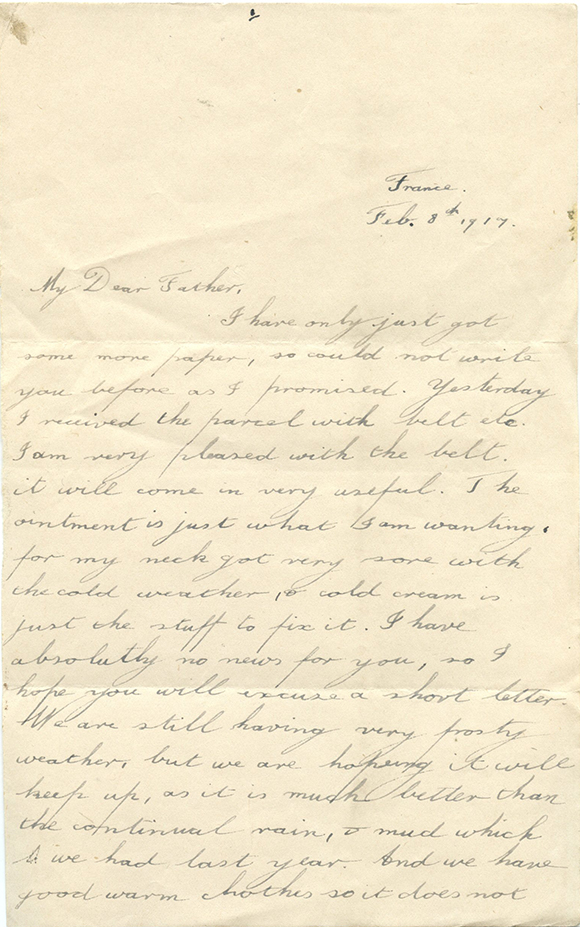 France.
Feb. 8th 1917.
My Dear Father,
I have only just got
some more paper, so could not write
you before as I promised. Yesterday
I received the parcel with belt etc.
I am very pleased with the belt.
it will come in very useful. The
ointment is just what I am wanting.
for my neck got very sore with
the cold weather, & cold cream is
just the stuff to fix it. I have
absolutly no news for you, so I
hope you will excuse a short letter.
We are still having very frosty
weather, but we are hopeing it will
keep up, as it is much better than
the continual rain, & mud which
we had last year. And we have
good warm clothes so it does not